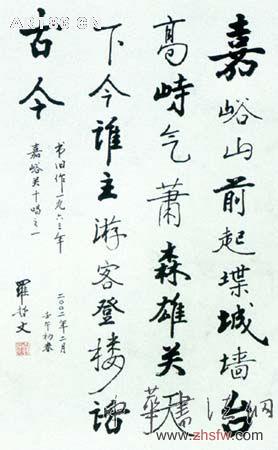 嘉峪山前起堞城墙台
高峙气萧森雄关天
下今谁主游客登楼话
古今
书旧作一九六三年
嘉峪关十唱之一
二〇〇二年二月
壬午初春
羅哲文
www.zhsfw.com